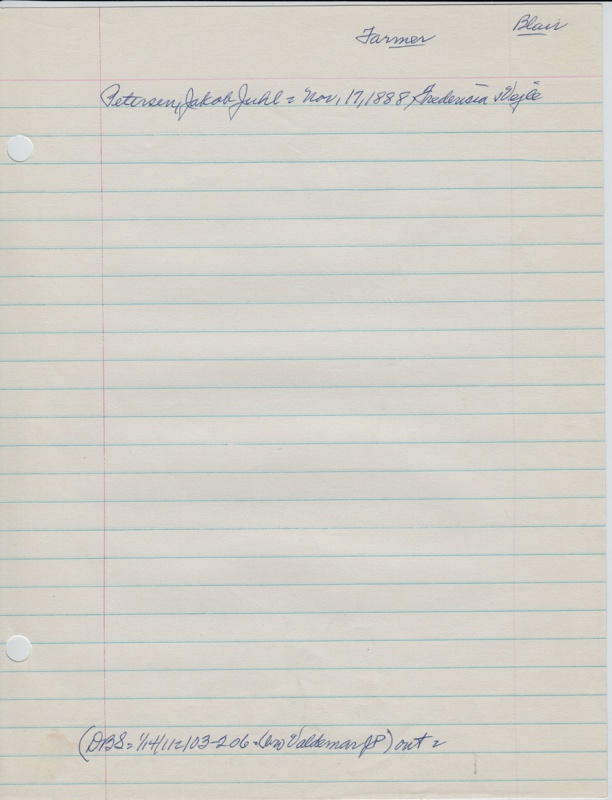 Blair
Farmer
Petersen, Jakob Juhl = Nov, 17, 1888, Fredericia, Vejle
(DBS = 1/14/11 = 103-206 = (bro Valdemar JP) out =